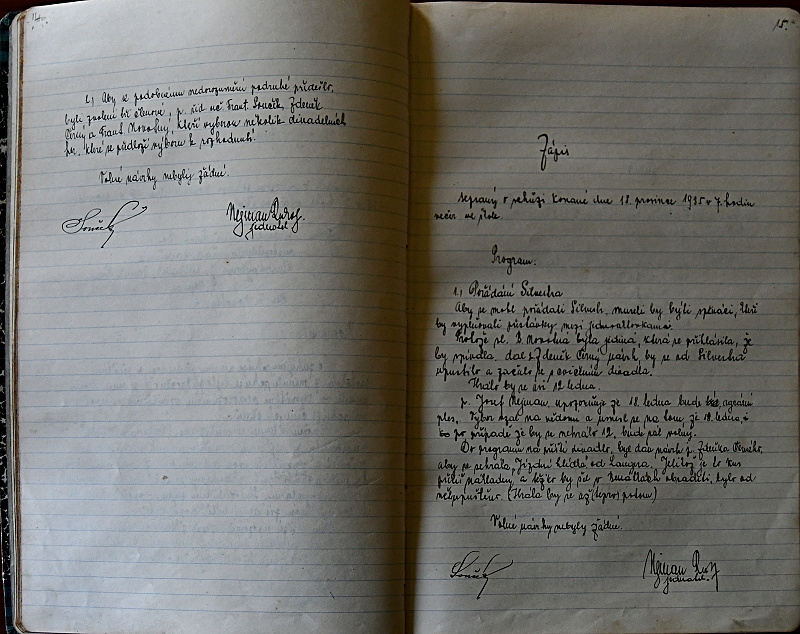 14.
2.) Aby se podobnému nedorozumění podruhé předešlo,
byli zvoleni tři členové, p. říd uč Frant. Souček, Zdeněk
Černý a Frant. Novotný, kteří vyberou několik divadelních
her, které se předloží výboru k rozhodnutí.
Volné návrhy nebyly žádné.
Souček
Nejman Rudolf.
jednatel.
15.
Zápis
sepsaný o schůzi konané dne 18. prosince 1935 v 7. hodin
večer ve škole.
Program:
1.) Pořádání Silvestra
Aby se mohl pořádati Silvestr, museli by býti zpěváci, kteří
by vyplňovali přestávky mezi jednoaktovkama.
Protože sl. B. Novotná byla jediná, která se přihlásila, že
by zpívala, dal Zdeněk Černý návrh, by se od Silvestra
upustilo a začalo se s cvičením divadla.
Hrálo by se asi 12 ledna.
p. Josef Nejman, upozorňuje že 18. ledna bude agrární
ples. Výbor vzal na vědomí a usnesl se na tom, že 18. ledna,
po případě že by se nehrálo 12. bude sál volný.
Do programu na příští divadlo, byl dán návrh p. Zdeňka
aby se sehrála „Jízdní hlídka" od Langra. Jelikož je to kus
příliš nákladný, a těžko by šel v obsaditi, bylo od
něj upuštěno. (Hrála by se až potom)
Volné návrhy nebyly žádné.
Souček
Nejman Rud.
jednatel.